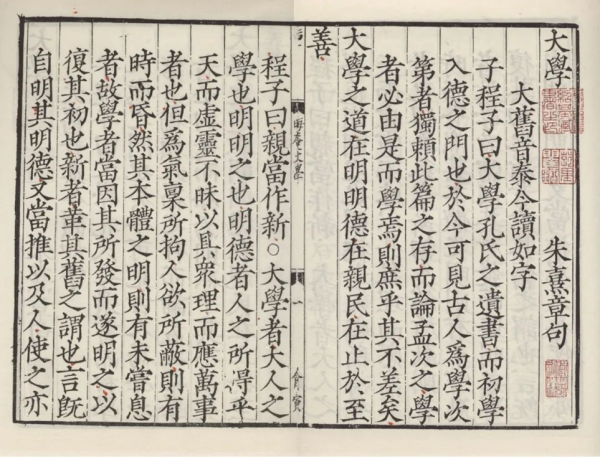 大學　朱熹章句
大舊音泰今讀如字
子程子曰大學孔氏之遺書而初學
入德之門也於今可見古人爲學次
第者獨賴此篇之存而論孟次之學
者必由是而學焉則庶乎其不差矣
大學之道在明明德在親民在止於至
善
大學
一
程子曰親當作新○大學者大人之
學也明明之也明德者人之所得乎
天而虛靈不昧以具衆理而應萬事
者也但爲氣稟所拘人欲所蔽則有
時而昏然其本體之明則有未嘗息
者故學者當因其所發而遂明之以
復其初也新者革其舊之謂也言旣
自明其明德又當推以及人使之亦